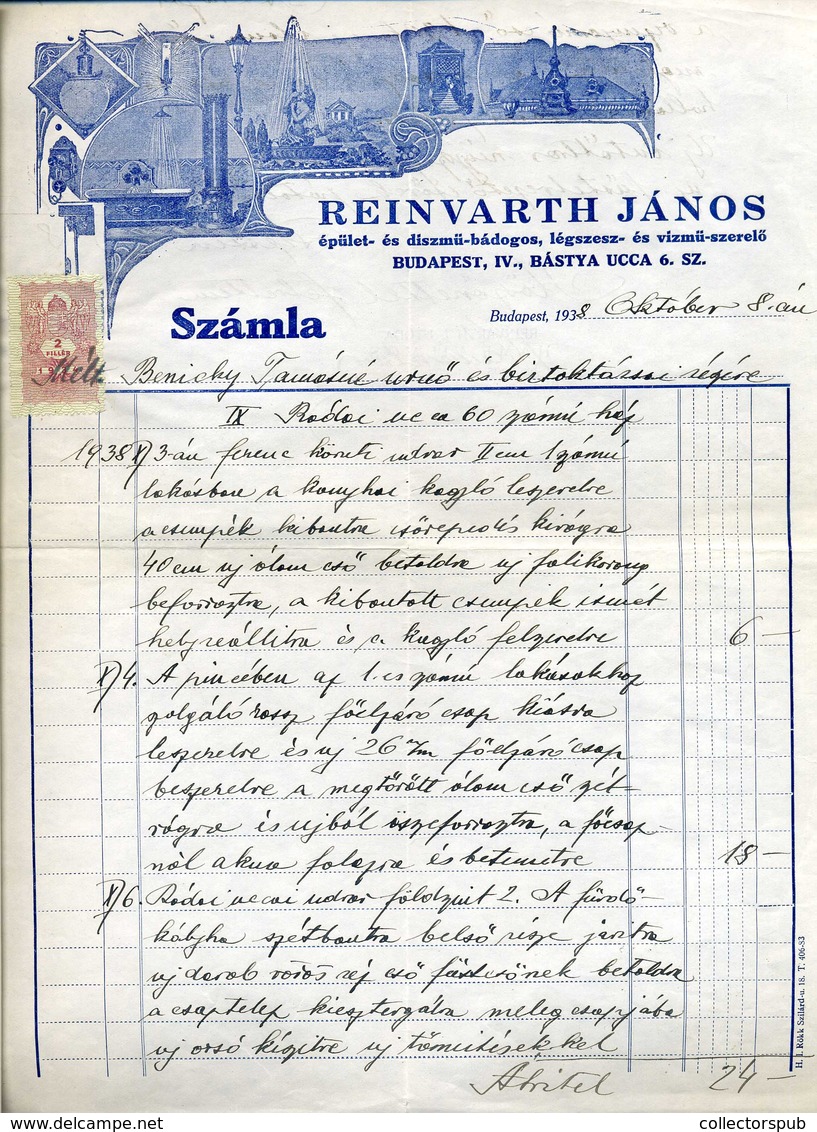 REINVARTH JÁNOS
épület- és diszmü-bádogos, légszesz- és vizmü-szerelő
BUDAPEST, IV., BÁSTYA UCCA 6. SZ.
Számla
Budapest, 1938 Október 8.-án
2
FILLÉR
Mélt. Beniczky Tamásné urnő és birtoktársai részére
IX Ráday ucca 60 számú ház
1938 X/3-án ferenc körúti udvar II em 1 számú
lakásban a konyhai kagyló leszerelve
a csempék kibontva csőrepedés kivágva
40 cm uj ólom cső betoldva uj falikorong
beforrasztva, a kibontott csempék ismét
helyreállitva és a kagyló felszerelve 6 —
X/4. A pincében az 1.es számú lakásokhoz
szolgáló rossz főelzáró csap kiásva
leszerelve és uj 26 m/m főelzáró csap
beszerelve a megtörött ólom cső szét-
vágva és ujból összeforrasztva, a főcsap-
nál akna falazva és betemetve 18 —
X/6. Ráday uccai udvar földszint 2. A fürdő-
kályha szétbontva belső része javitva
uj darab vörös réz cső füstcsőnek betoldva
a csaptelep kiesztergálva meleg csapjába
uj orsó készitve uj tömitésekkel
Átvitel 24 —
H. I. Rökk Szilárd-u. 18. T. 406-83
collectorspub
delcampe.net